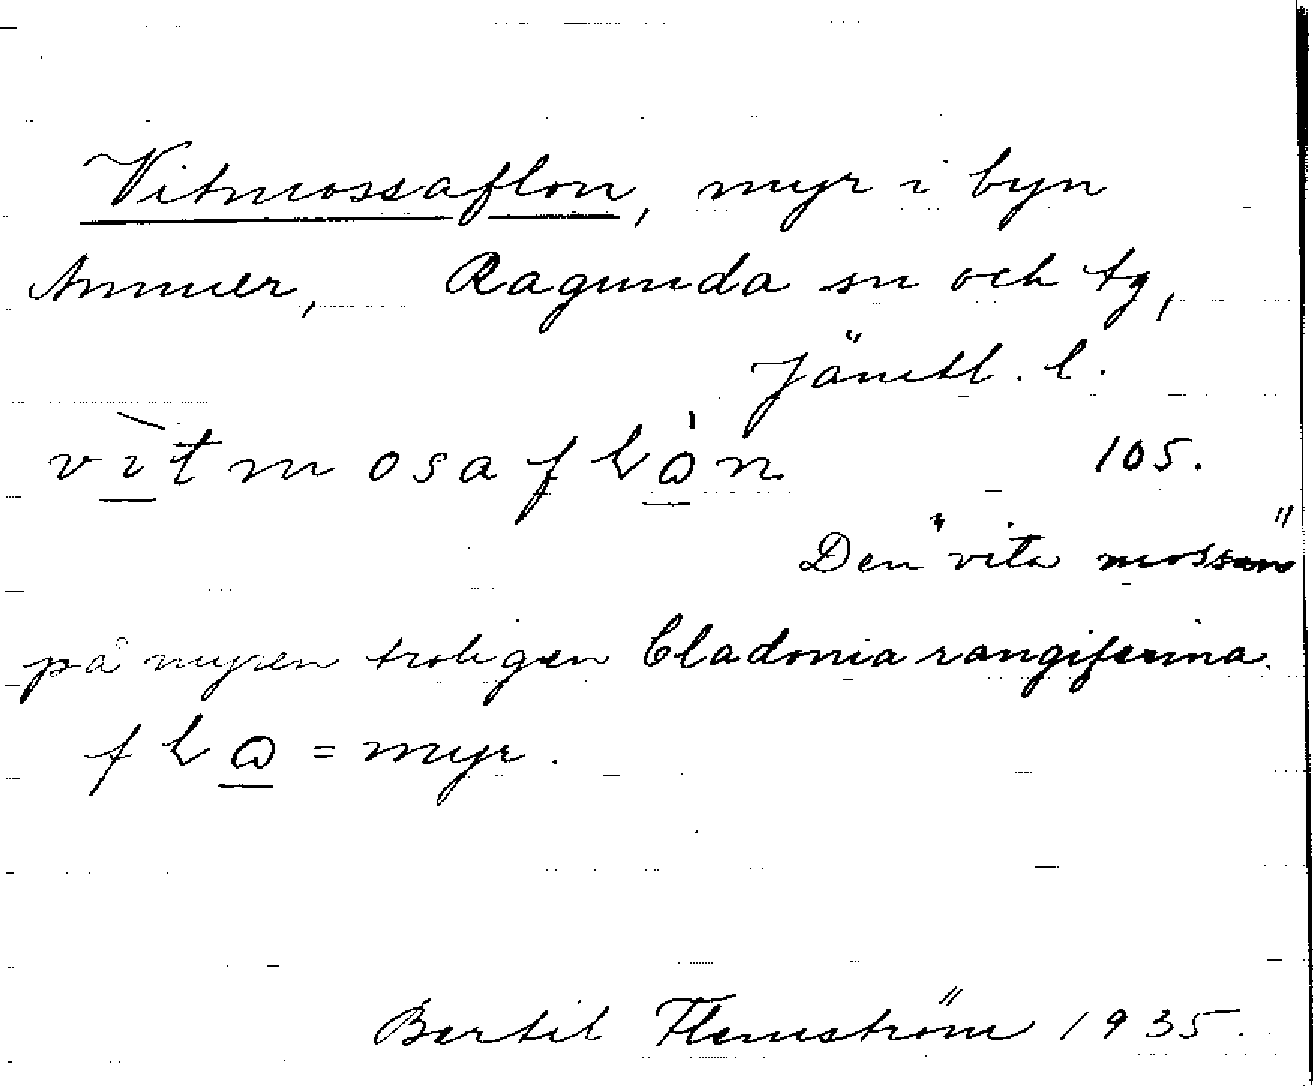 Vitmossaflon, myr i byn
Ammer, Ragunda sn och tg,
Jämtl. l.
vìtmosaflɷ̀n 105.
Den "vita mossan"
på myren troligen Cladonia rangiferina.
flɷ = myr.
Bertil Flemström 1935.